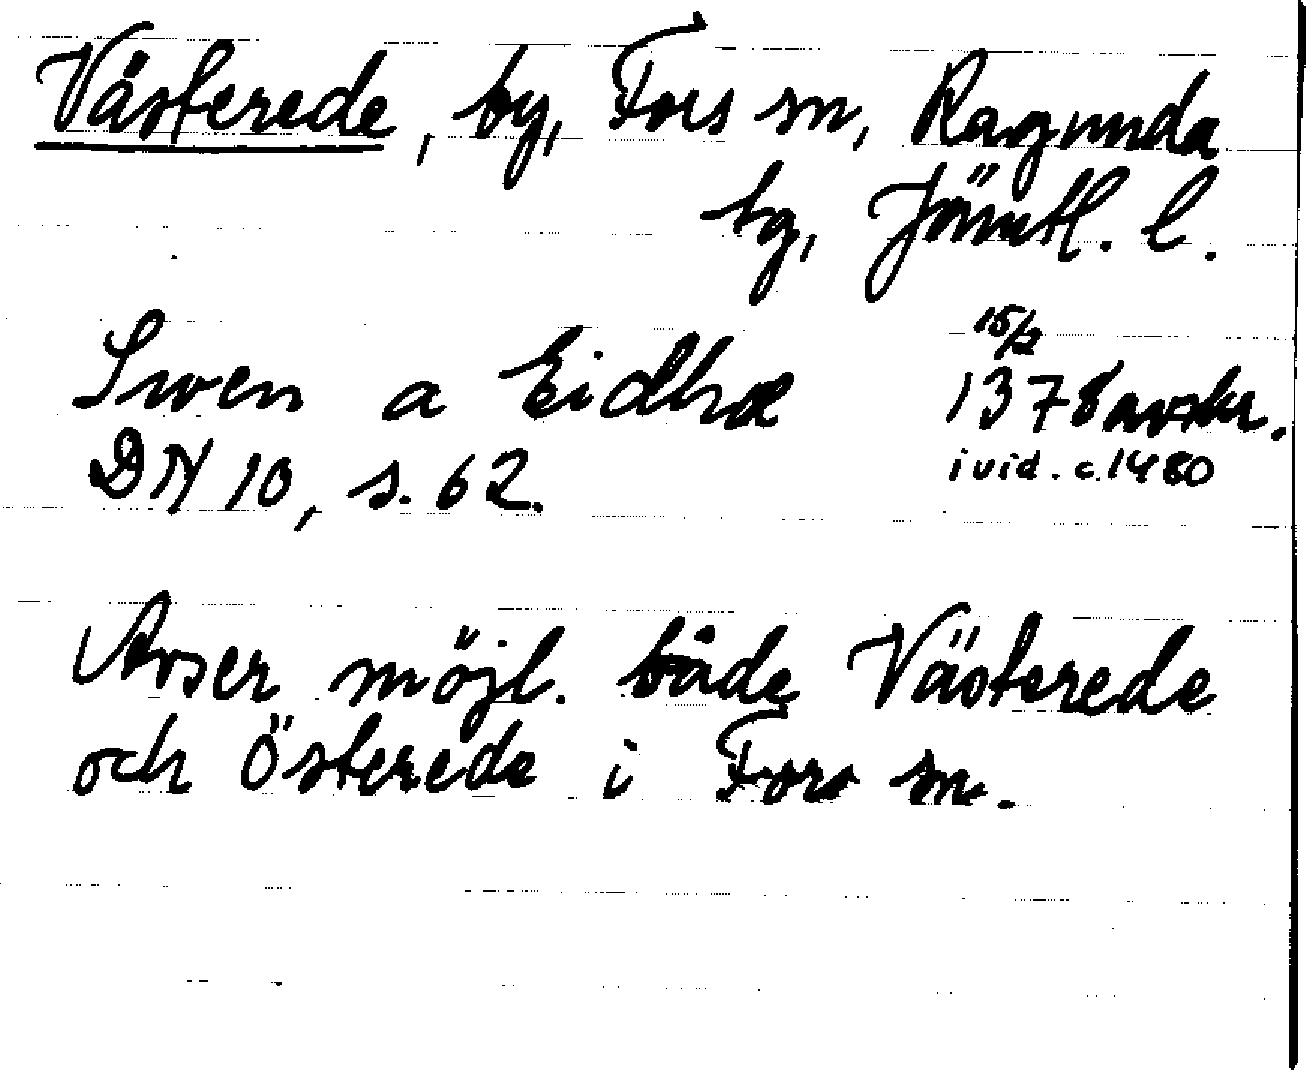 Västerede, by, Fors sn, Ragunda
tg, Jämtl. l.
Swen a Eidhæ 15/2
1378 avskr.
DN 10, s. 62. i vid. c. 1480
Avser möjl. både Västerede
och Österede i Fors sn.